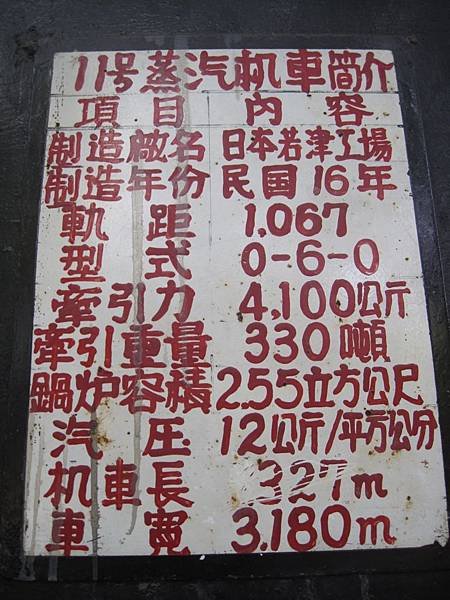 11号蒸汽机車简介
項目 内容
制造廠名 日本若津工場
制造年份 民国16年
軌距 1,067
型式 0-6-0
牽引力 4,100公斤
牽引重量 330噸
鍋炉容積 2.55立方公尺
汽压 12公斤/平方公分
机車長 327m
車寬 3.180m